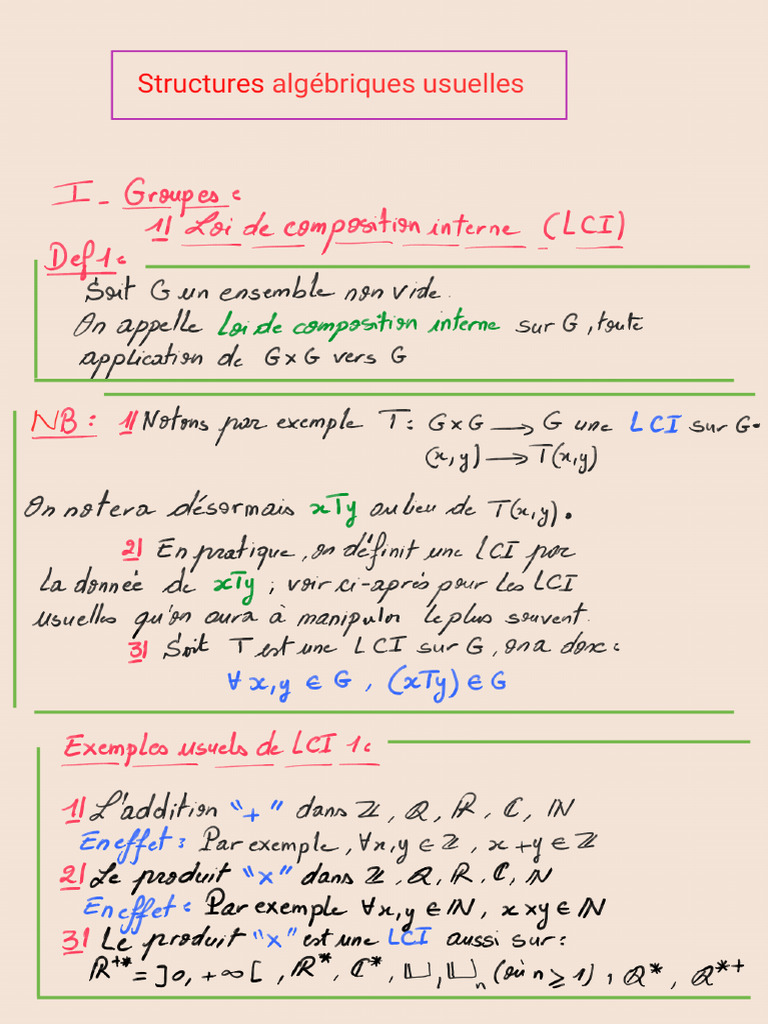 Structures algébriques usuelles
I - Groupes :
1/ Loi de composition interne (LCI)
Def 1 :
Soit G un ensemble non vide.
On appelle loi de composition interne sur G, toute
application de G×G vers G
NB : 1/ Notons par exemple T : G×G → G une LCI sur G.
(x,y) → T(x,y)
On notera désormais xTy au lieu de T(x,y).
2/ En pratique, on définit une LCI par
la donnée de xTy ; voir ci-après pour les LCI
usuelles qu'on aura à manipuler le plus souvent.
3/ Soit T est une LCI sur G, on a donc :
∀ x,y ∈ G , (xTy) ∈ G
Exemples usuels de LCI 1 :
1/ L'addition "+" dans ℤ, ℚ, ℝ, ℂ, ℕ
En effet : Par exemple, ∀x,y ∈ ℤ, x+y ∈ ℤ
2/ Le produit "×" dans ℤ, ℚ, ℝ, ℂ, ℕ
En effet : Par exemple ∀x,y ∈ ℕ, x×y ∈ ℕ
3/ Le produit "×" est une LCI aussi sur :
ℝ⁺* = ]0, +∞[ , ℝ*, ℂ*, 𝕌, 𝕌ₙ (où n ≥ 1), ℚ*, ℚ*⁺